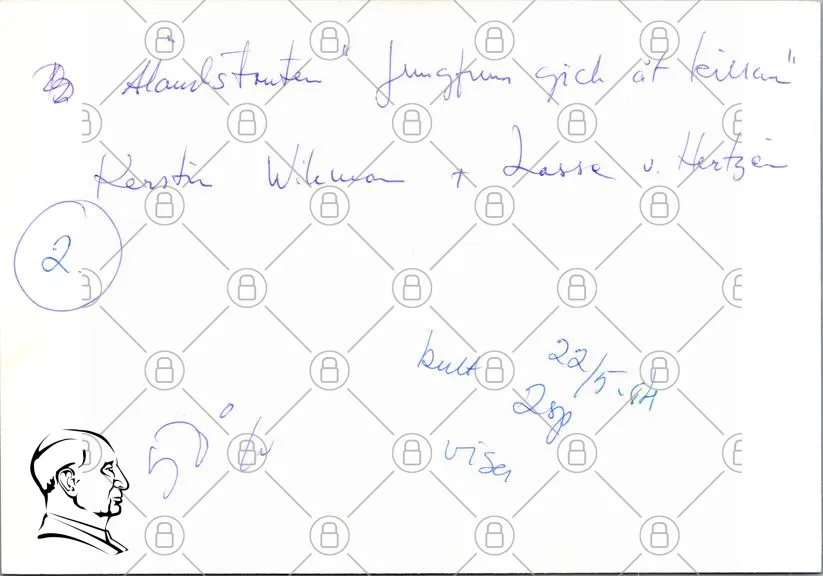 "Ålandstruten" "Jungfrun gick åt killan"
Kerstin Wikman + Lasse v. Hertzén
2
kult 22/5
2sp
visa
50 %